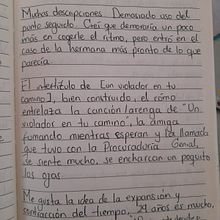 Muchas descripciones. Demasiado uso del
punto seguido. Creí que demoraría un poco
más en cogerle el ritmo, pero entró en el
caso de la hermana más pronto de lo que
parecía.
El intertítulo de [un violador en tu
camino], bien construido, el cómo
entrelaza la canción/arenga de "Un
violador en tu camino", la amiga
fumando mientras esperan y la llamada
que tuvo con la Procuraduría Genial,
se siente mucho, se encharcan un poquito
los ojos.
Me gusta la idea de la expansión y
contracción del tiempo, "29 años es mucho,